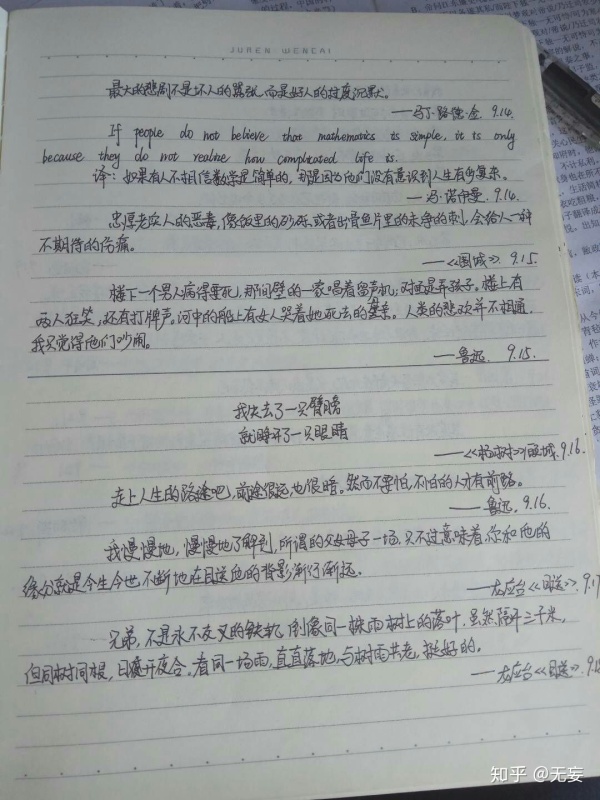 JUREN WENCAI
最大的悲剧不是坏人的嚣张,而是好人的过度沉默。
——马丁·路德·金 9.14.
If people do not believe that mathematics is simple, it is only
because they do not realize how complicated life is.
译:如果有人不相信数学是简单的,那是因为他们没有意识到人生有多复杂。
——冯·诺伊曼. 9.14.
忠厚老实人的恶毒,像饭里的砂砾,或者出骨鱼片里的未净的刺,会给人一种
不期待的伤痛。
——《围城》. 9.15.
楼下一个男人病得要死,那间壁的一家唱着留声机;对面是弄孩子。楼上有
两人狂笑,还有打牌声。河中的船上有女人哭着她死去的母亲。人类的悲欢并不相通,
我只觉得他们吵闹。
——鲁迅. 9.15.
我失去了一只臂膀
就睁开了一只眼睛
——《杨树》顾城.9.16.
走上人生的路途吧,前途很远,也很暗。然而不要怕,不怕的人才有前路。
——鲁迅. 9.16.
我慢慢地,慢慢地了解到,所谓的父女母子一场,只不过意味着,你和他的
缘分就是今生今世不断地在目送他的背影渐行渐远.
——龙应台《目送》. 9.17
兄弟,不是永不交叉的铁轨,倒像同一株雨树上的落叶.虽然隔开三千米,
但同树同根,日开夜合。看同一场雨,直直落地,与树雨共老,挺好的。
——龙应台《目送》. 9.18
知乎 @无妄